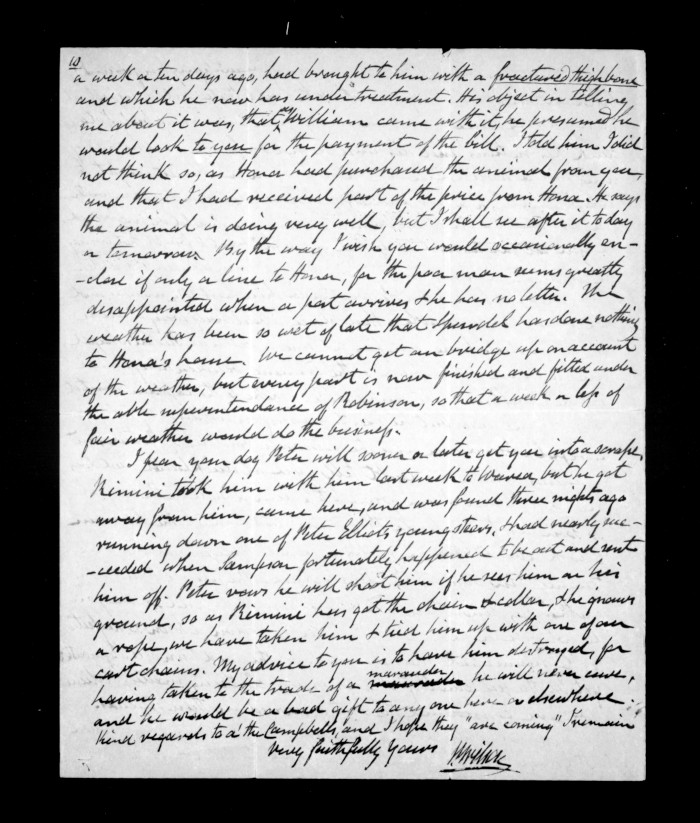 10
a week or ten days ago, had brought to him with a fractured thigh bone
and which he now has under treatment. His object in telling
me about it was, that as William came with it, he presumed he
would look to you for the payment of the bill. I told him I did
not think so, as Hona had purchased the animal from you,
and that I had received part of the price from Hona. He says
the animal is doing very well, but I shall see after it today
or tomorrow. By the way I wish you would occasionally en-
-close if only a line to Hona, for the poor man seems greatly
disappointed when a post arrives & he has no letter. The
weather has been so wet of late that Spurdel has done nothing
to Hona's house. We cannot get our bridge up on account
of the weather, but every part is now finished and fitted under
the able superintendance of Robinson, so that a week or less of
fair weather would do the business.
I fear your dog Peter will sooner or later get you into a scrape,
Rimini took him with him last week to but he got
away from him, came here, and was found three nights ago
running down one of Peter Elliots young steers, & had nearly suc-
-ceeded when Sampson fortunately happened to be out and sent
him off. Peter vows he will shoot him if he sees him on his
ground, so as Rimini has got the chain & collar, & he gnaws
a rope, we have taken him & tied him up with one of our
cart chains. My advice to you is to have him destroyed, for
having taken to the trade of a marauder he will never cure,
and he would be a bad gift to any one here or elsewhere.
Kind regards to a' the Campbells, and I hope they "are coming" I remain
very faithfully yours